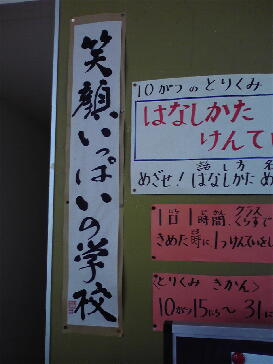 笑顔いっぱいの学校
10がつのとりくみ
はなしかた
けんてい
話し方
めざせ!はなしかため
1日1時間、クラス
くらすで
きめた時に1つけんていをし
<とりくみ きかん>
10がつ15にち〜31に